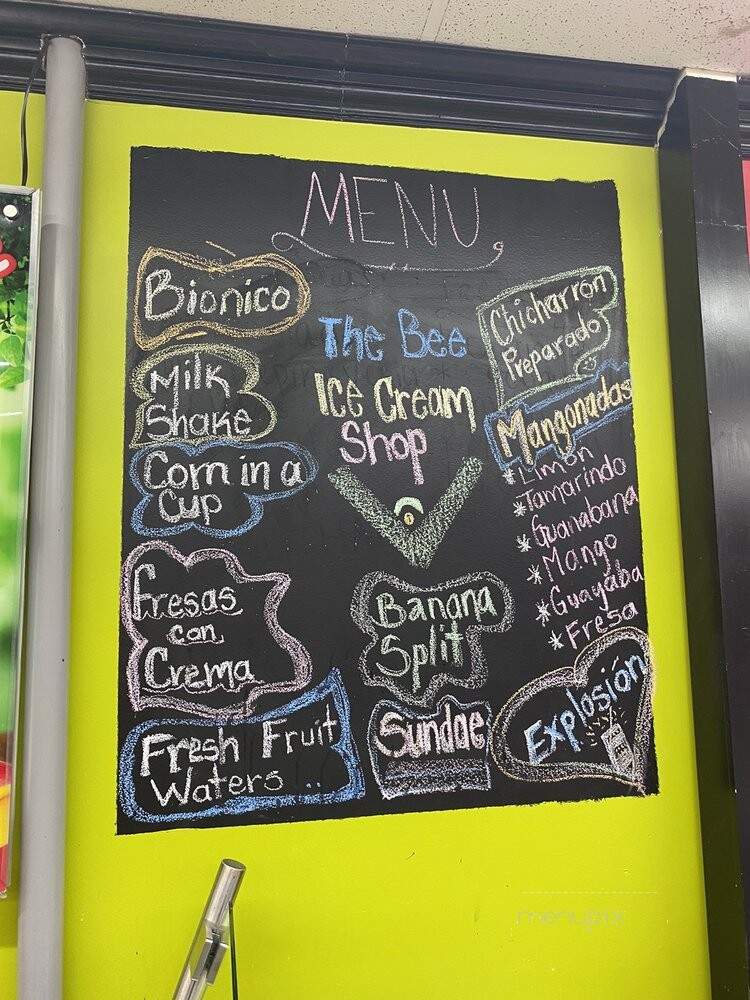 MENU
Bionico
Milk
Shake
Corn in a
Cup
Fresas
con
Crema
Fresh Fruit
Waters ..
The Bee
Ice Cream
Shop
Banana
Split
Sundae
Chicharrón
Preparado
Mangonadas
*Limón
*Tamarindo
*Guanabana
*Mango
*Guayaba
*Fresa
Explosión
menupix